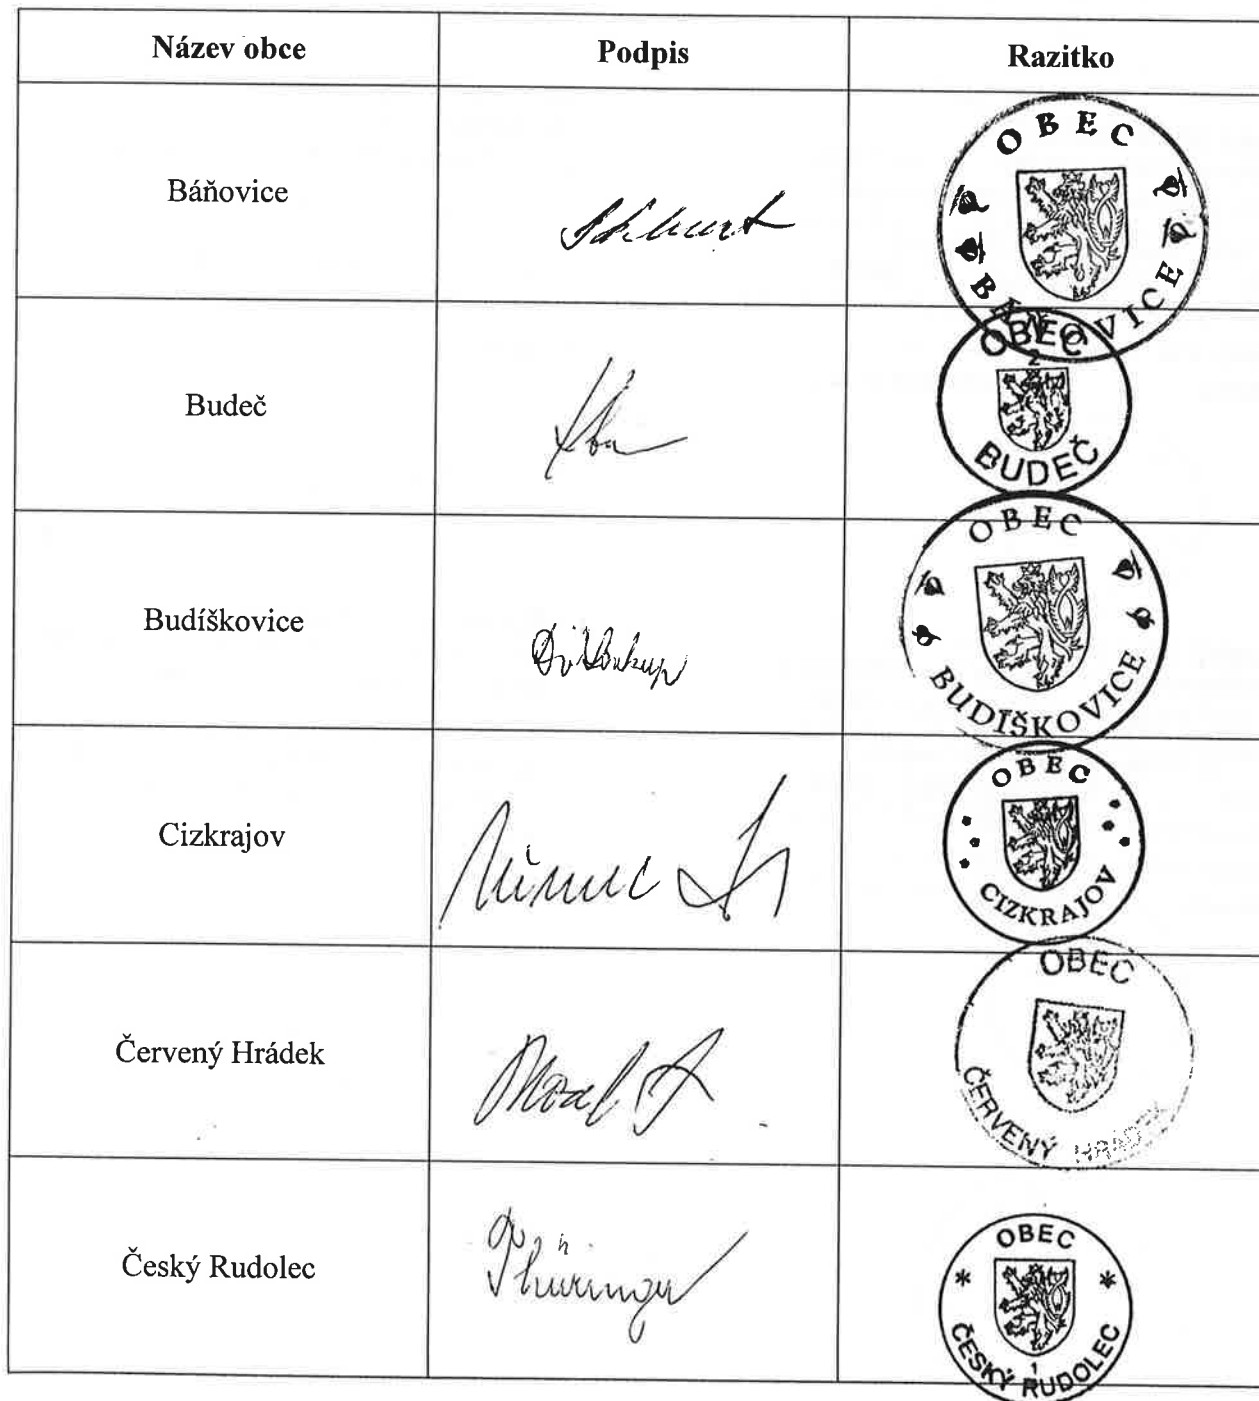 Název obce Podpis Razitko
Báňovice
OBEC
BÁŇOVICE
Budeč
OBEC
2
BUDEČ
Budíškovice
OBEC
BUDÍŠKOVICE
Cizkrajov
Němec
OBEC
CIZKRAJOV
Červený Hrádek
OBEC
ČERVENÝ HRÁDEK
Český Rudolec
Thüringer
OBEC
ČESKÝ RUDOLEC
1